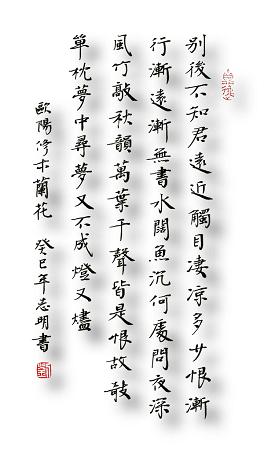 別後不知君遠近觸目淒涼多少恨漸
行漸遠漸無書水闊魚沉何處問夜深
風竹敲秋韻萬葉千聲皆是恨故敧
單枕夢中尋夢又不成燈又燼
歐陽修木蘭花 癸巳年志明書